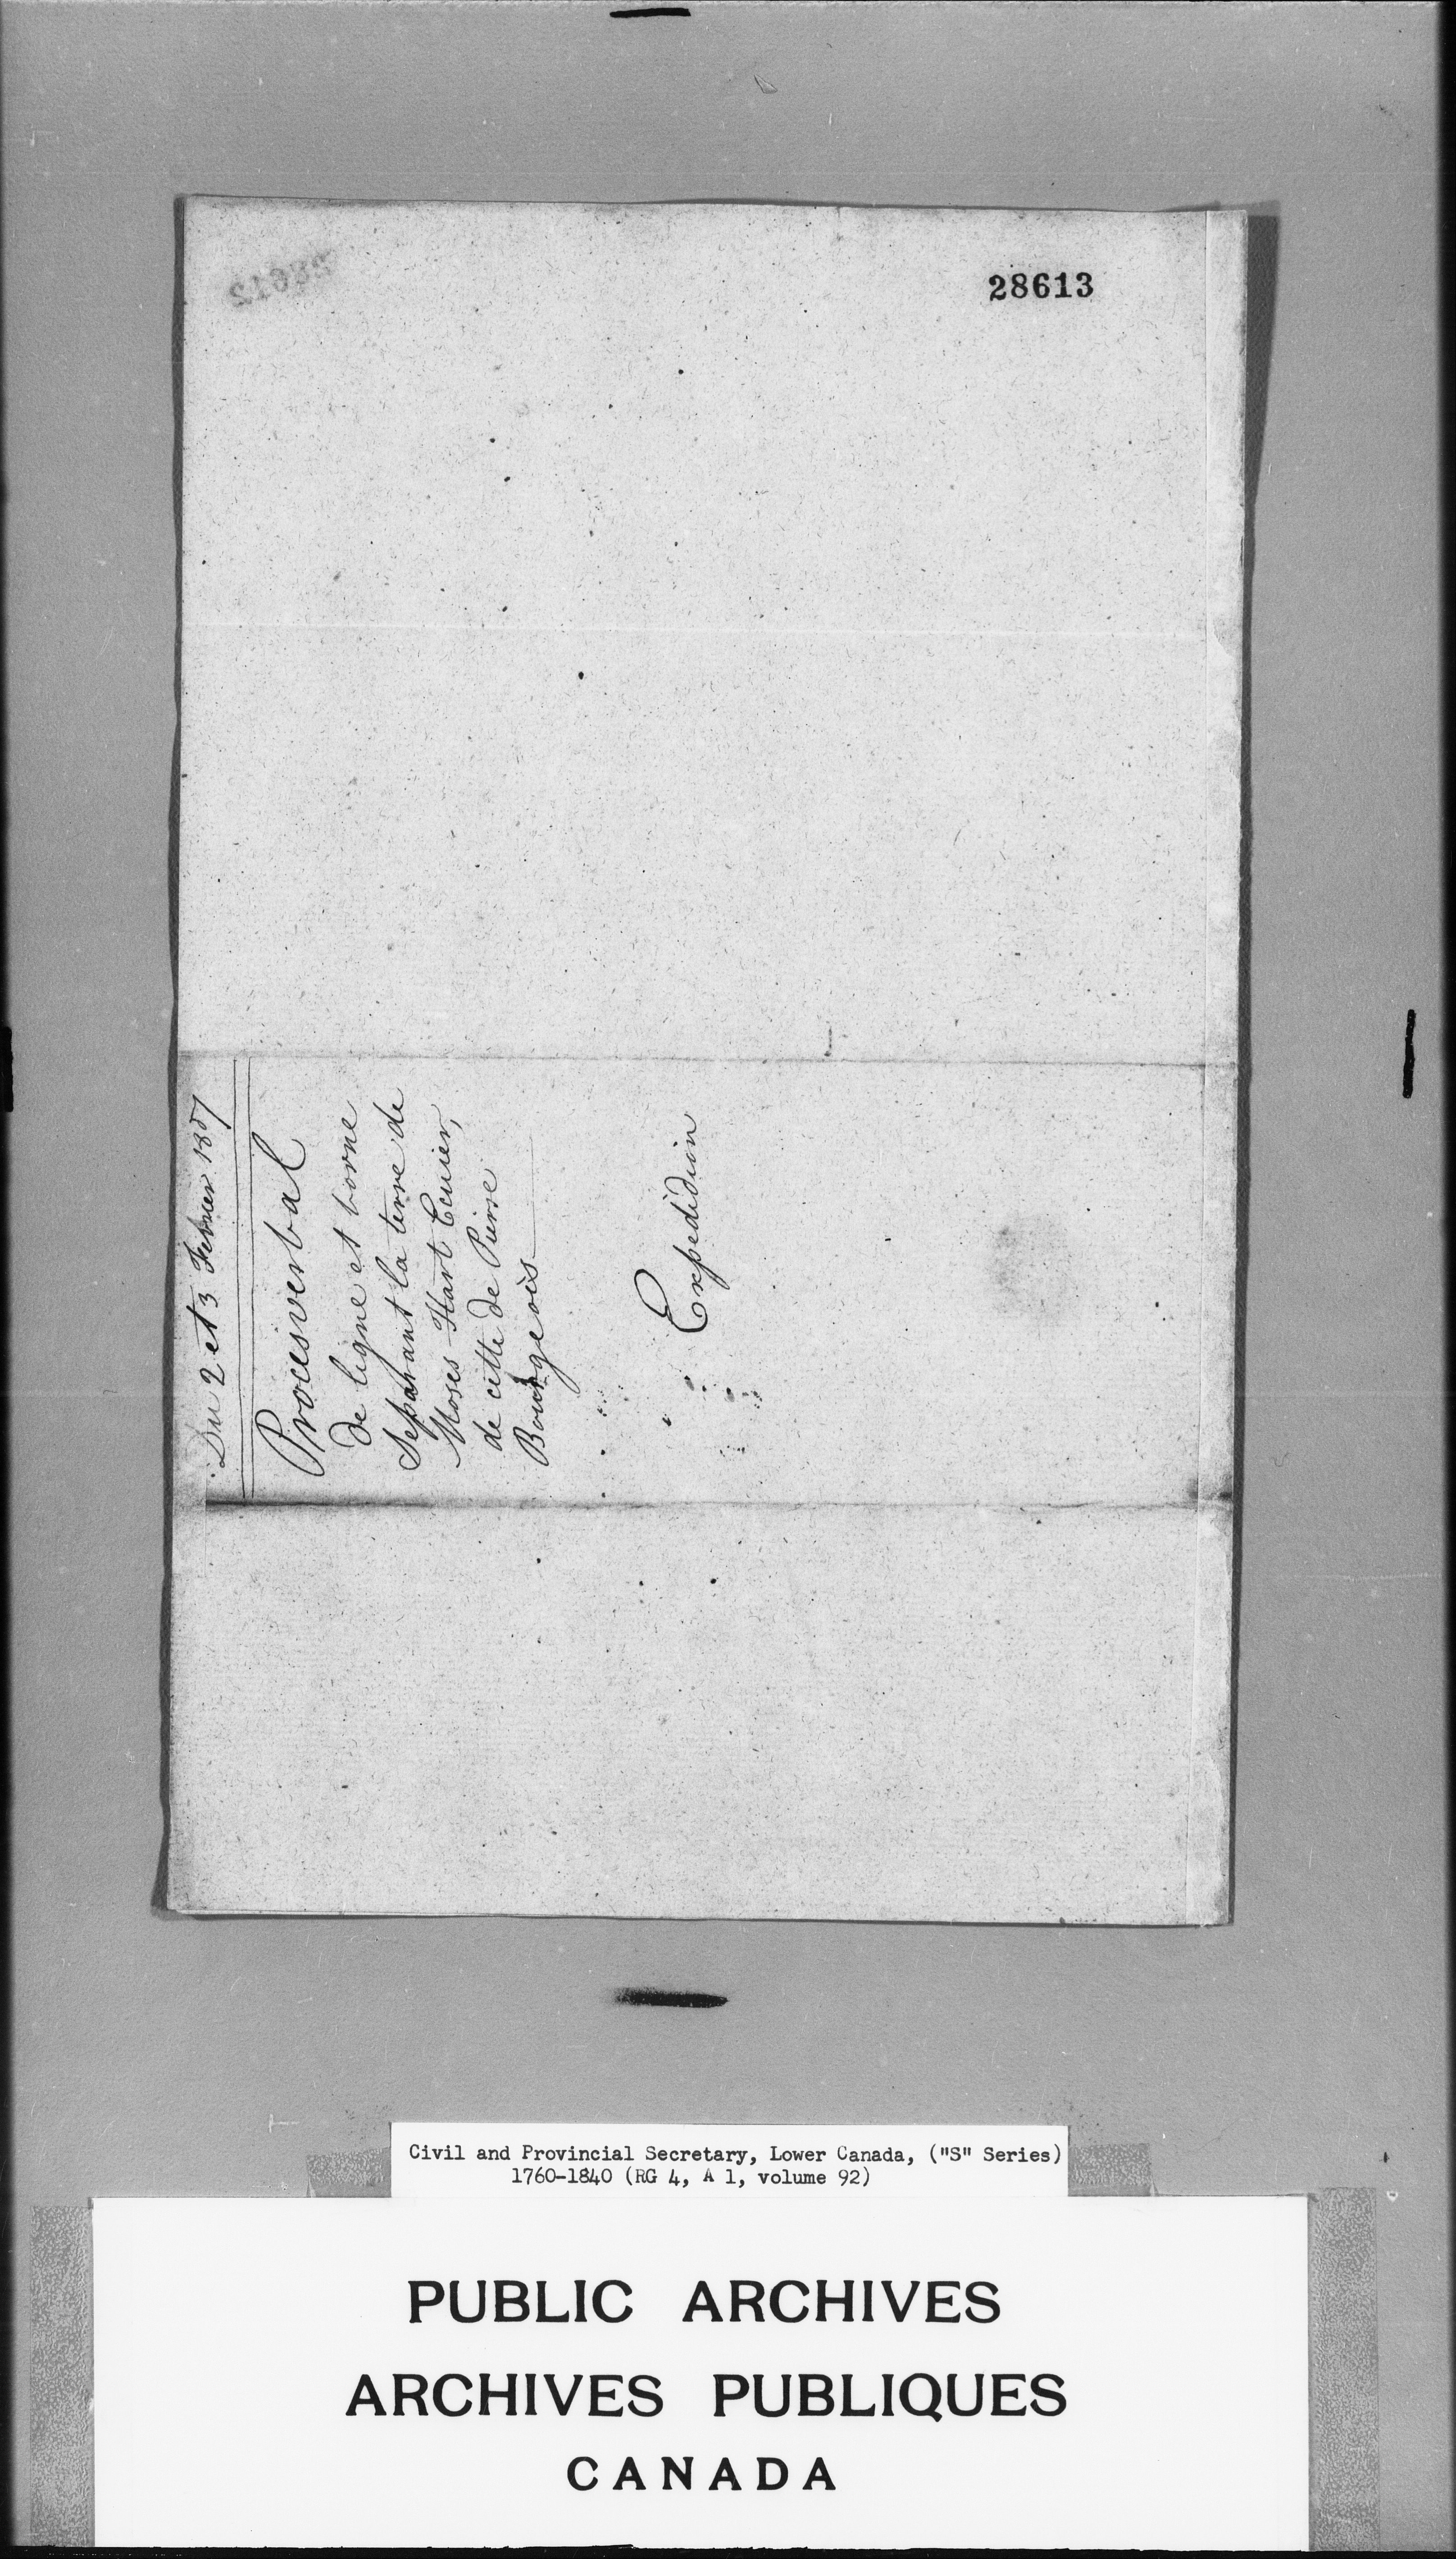 28613
Du 2 et 3 Fevrier 1807
Procesverbal
de ligne et borne
Separant la terre de
Moses Hart Ecuier,
de cette de Pierre
Bourgeois
Expedidion
Civil and Provincial Secretary, Lower Canada, ("S" Series)
1760-1840 (RG 4, A 1, volume 92)
PUBLIC ARCHIVES
ARCHIVES PUBLIQUES
CANADA